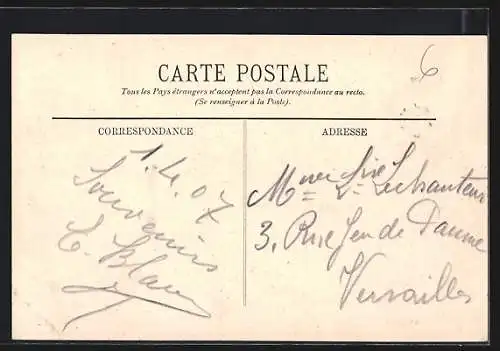 6
CARTE POSTALE
Tous les Pays étrangers n'acceptent pas la Correspondance au recto.
(Se renseigner à la Poste).
CORRESPONDANCE
1.4.07
Souvenirs
E. Blanc
ADRESSE
Lechanteur
3, Rue Jeu de Paume
Versailles